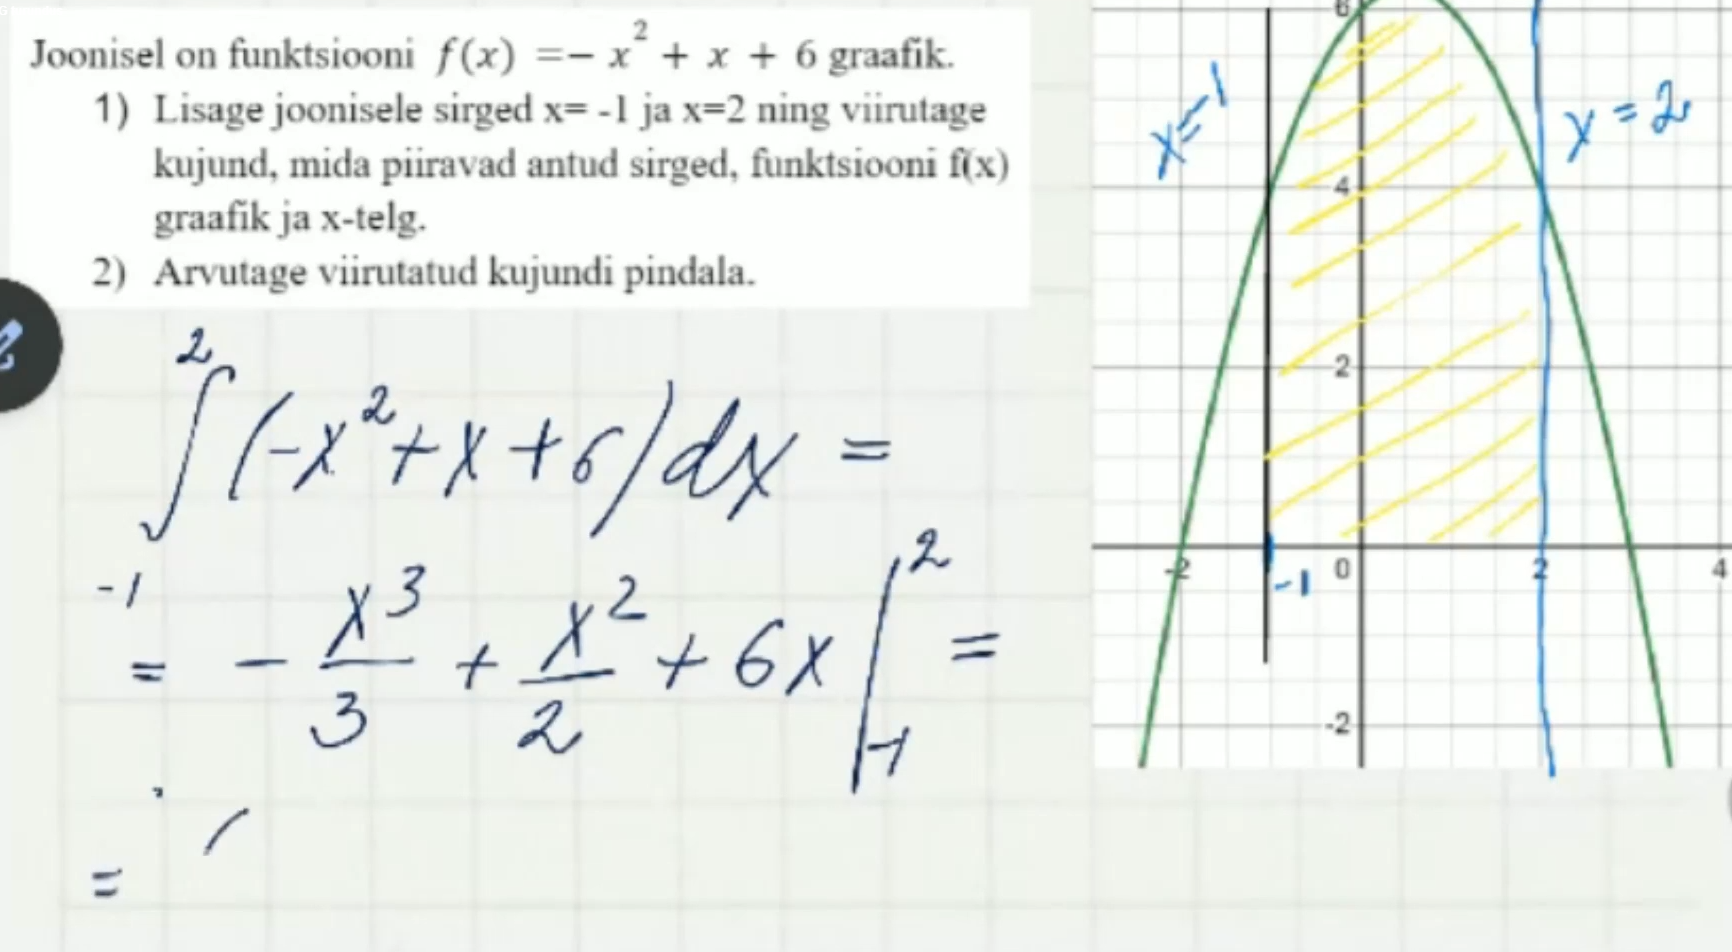 Joonisel on funktsiooni f(x) =− x² + x + 6 graafik.
1) Lisage joonisele sirged x= -1 ja x=2 ning viirutage
kujund, mida piiravad antud sirged, funktsiooni f(x)
graafik ja x-telg.
2) Arvutage viirutatud kujundi pindala.
2
∫ (-x²+x+6)dx =
-1
= - x³/3 + x²/2 + 6x |²₋₁ =
= (
6
x=-1
x=2
4
2
-2 0 2 4
-1
-2